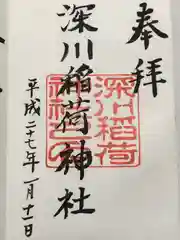 奉拝
深川稲荷神社
深川稲荷
平成二十七年一月十一日